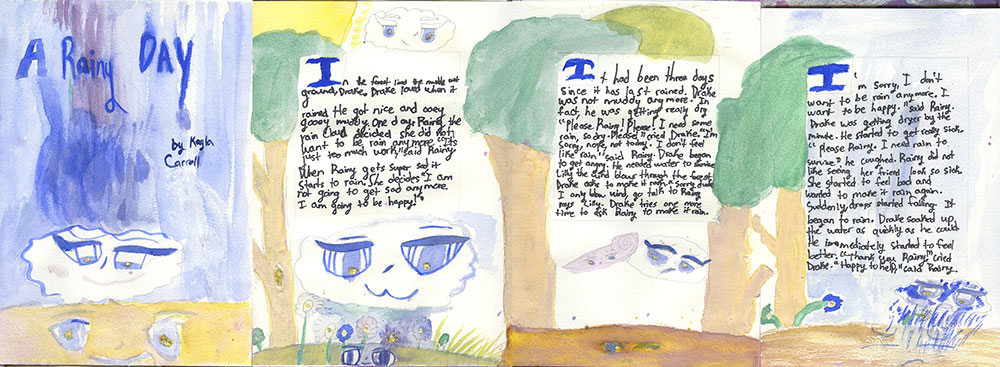 A Rainy DAY
by Kayla
Carroll
In the forest lived the muddle wet
ground, Drake. Drake loved when it
rained. He got nice and ooey
gooey muddy. One day, Rainy, the
rain cloud decided she did not
want to be rain anymore. "It's
just too much work," said Rainy.
When Rainy gets super sad it
starts to rain. She decides "I am
not going to get sad anymore.
I am going to be happy!"
It had been three days
since it has last rained. Drake
was not muddy anymore. In
fact, he was getting really dry
"Please Rainy! Please! I need some
rain, so dry. Please!" cried Drake. "I'm
sorry, nope, not today. I don't feel
like rain" said Rainy. Drake began
to get angry. He needed water to survive
Lily the wind blows through the forest.
Drake asks to make it rain. "Sorry dude
I only blow wind, go talk to Rainy"
says Lily. Drake tries one more
time to ask Rainy to make it rain.
I'm sorry, I don't
want to be rain anymore. I
want to be happy." said Rainy.
Drake was getting dryer by the
minute. He started to get really sick.
"Please Rainy. I need rain to
survive", he coughed. Rainy did not
like seeing her friend look so sick
She started to feel bad and
wanted to make it rain again.
Suddenly, drops started falling. It
began to rain. Drake soaked up
the water as quickly as he could
He immediately started to feel
better. "Thank you Rainy!" cried
Drake. "Happy to help," said Rainy.